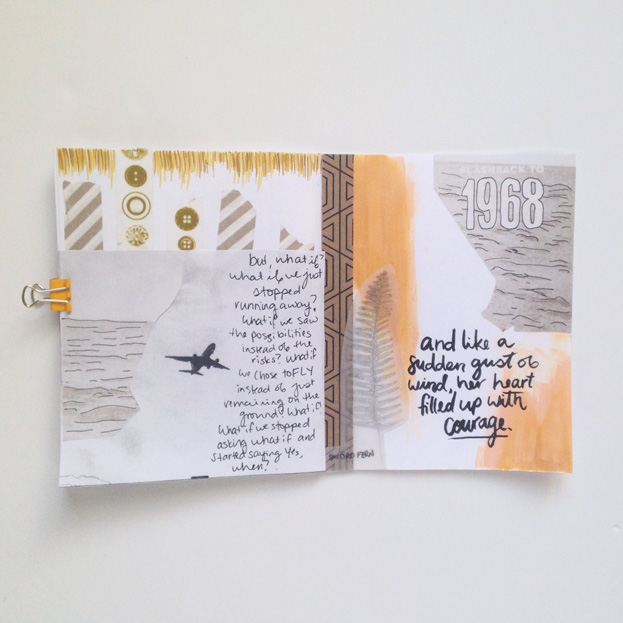 but, what if?
what if we just
stopped
running away?
What if we saw
the possibilities
instead of the
risks? What if
we chose to FLY
instead of just
remaining on the
ground? What if?
What if we stopped
asking what if and
started saying Yes,
when?
SWORD FERN
FLASHBACK TO
1968
and like a
sudden gust of
wind, her heart
filled up with
courage.